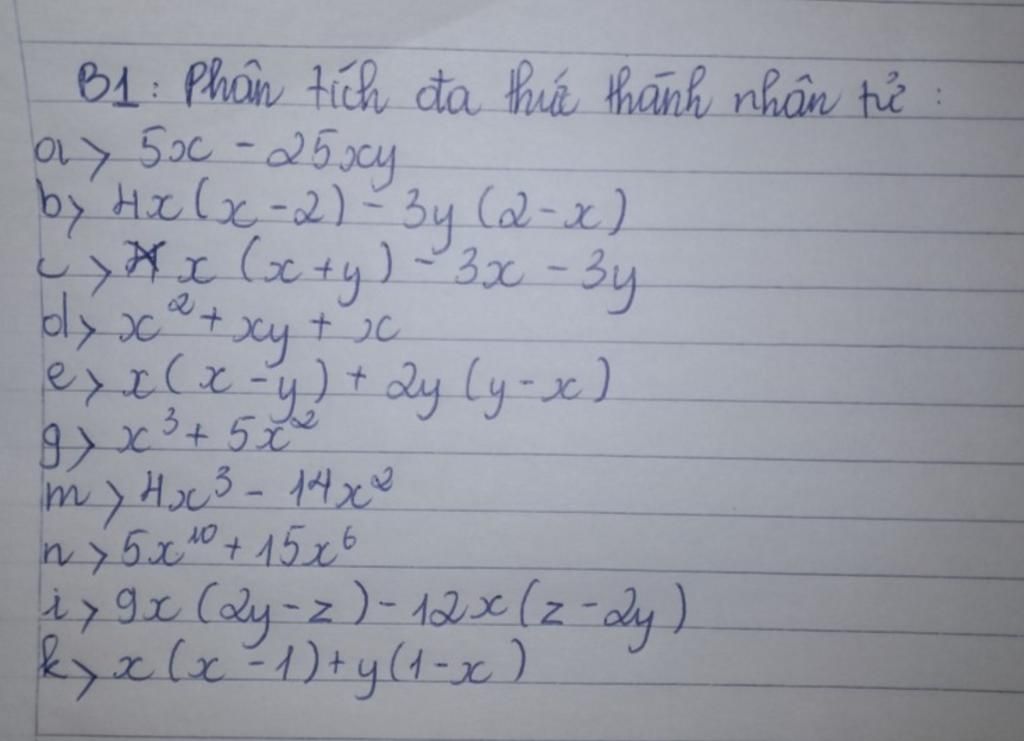 B1: Phân tích đa thức thành nhân tử:
a> 5x - 25xy
b> 4x(x-2) - 3y(2-x)
c> x(x+y) - 3x - 3y
d> x² + xy + x
e> x(x-y) + 2y(y-x)
g> x³ + 5x²
m> 4x³ - 14x²
n> 5x¹⁰ + 15x⁶
i> 9x(2y-z) - 12x(z-2y)
k> x(x-1) + y(1-x)